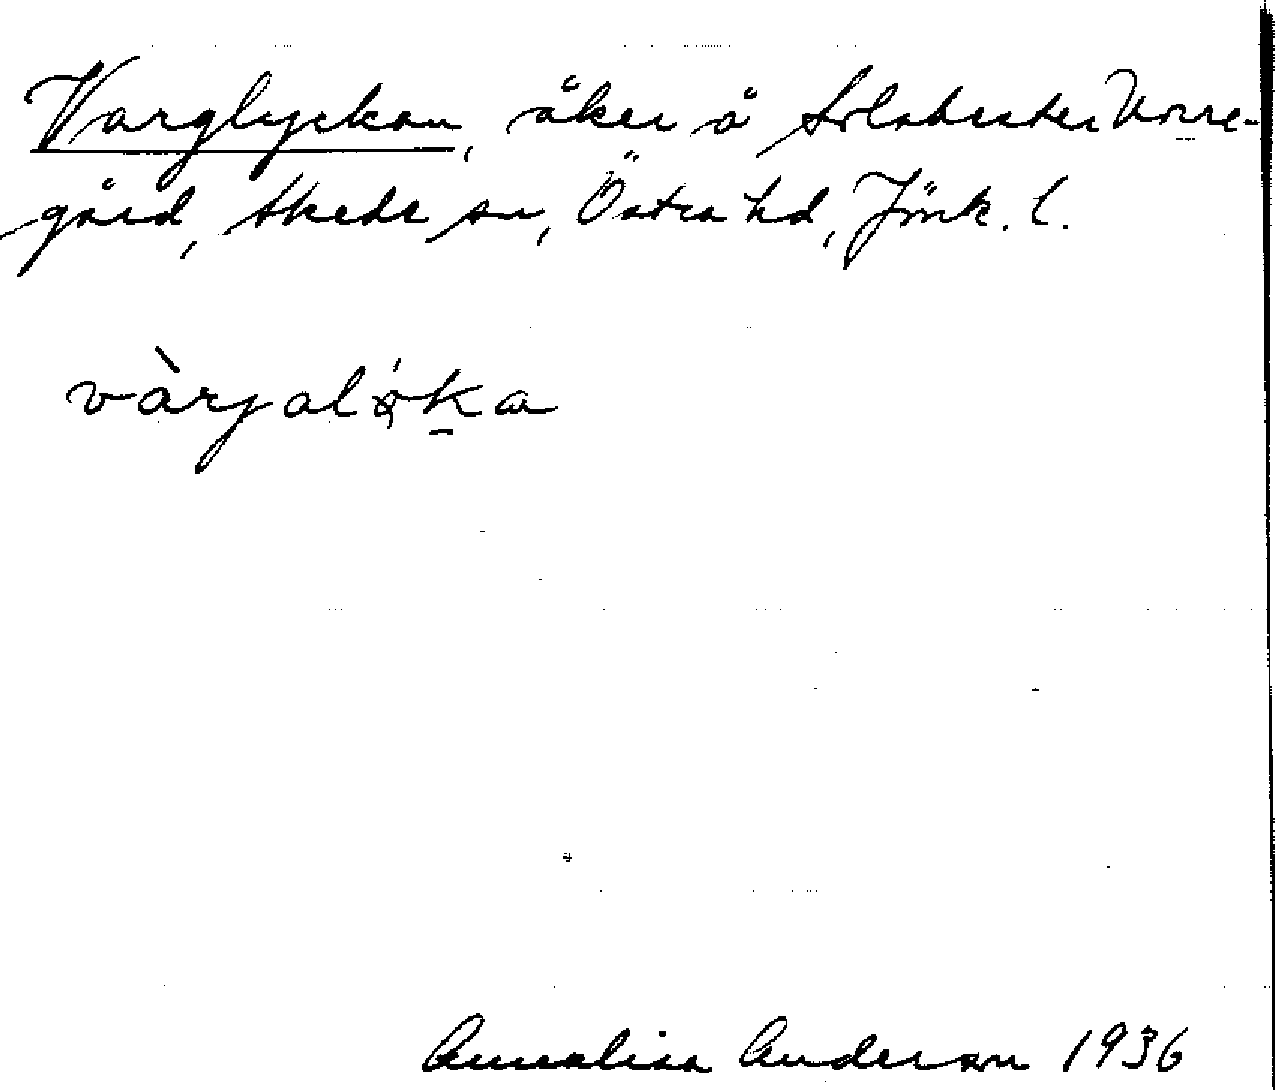 Varglyckan, åker å Norre-
gård, Skede sn, Östra hd, Jönk. l.
vàrjalǿka
Annalisa Anderson 1936